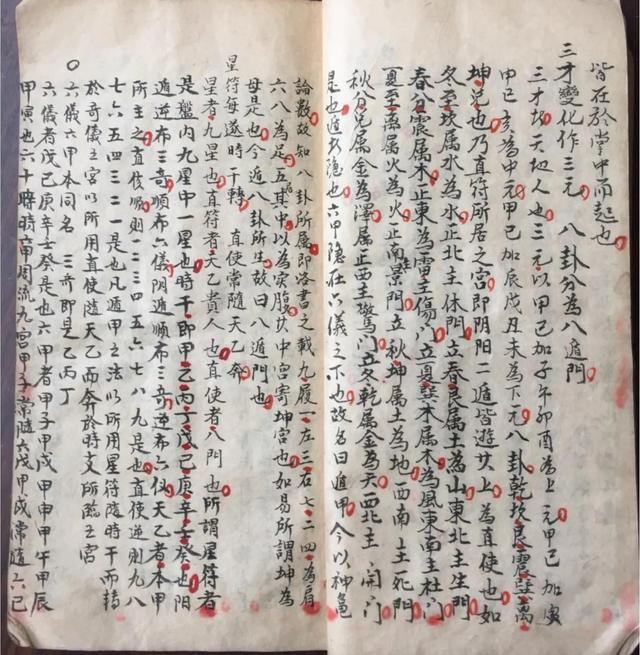 皆在於掌中而起也
三才變化作三元 八卦分為八遁門
三才故天地人也三元以甲己加子午卯酉為上元甲己加寅
申巳亥為中元甲己加辰戌丑未為下元八卦乾坎艮震巽离
坤兌也乃直符所居之宮即阴阳二遁皆遊其上為直使也如
冬至坎属水為水正北主休門立春艮属土為山東北主生門
春分震属木正東為雷主傷門立夏巽木属木為風東南主杜門
夏至离属火為火正南景門立秋坤属土為地西南主死門
秋分兌属金為澤属正西主驚門立冬乾属金為天西北主開門
是也遁者隐也六甲隐在六儀之下也故名曰遁甲今以神龜
論數故知八卦所属即洛書之載九履一左三右七二四為肩
六八為足五其中以為实腹其中宮寄坤宮也如易所謂坤為
母是也今遁八卦所生故曰八遁門也
星符每遂時干轉 直使常隨天乙奔
星者九星也直符者天乙貴人也直使者八門也所謂星符者
是盤内九星中一星也時干即甲乙丙丁戊己庚辛壬癸也阳
遁逆布三奇順布六儀阴遁順布三奇逆布六仪天乙者本甲
所主之直使順則一二三四五六七八九是也直使逆則九八
七六五四三二一是也凡遁甲之法以所用星符隨時干而轉
於奇儀之宮以所用直使隨天乙而奔於時支所臨之宮
〇六儀六甲本同名 三奇即是乙丙丁
六儀者戊己庚辛壬癸是也六甲者甲子甲戌甲申甲午甲辰
甲寅也六十時干周流九宮甲子常隨六戊甲戌常隨六己